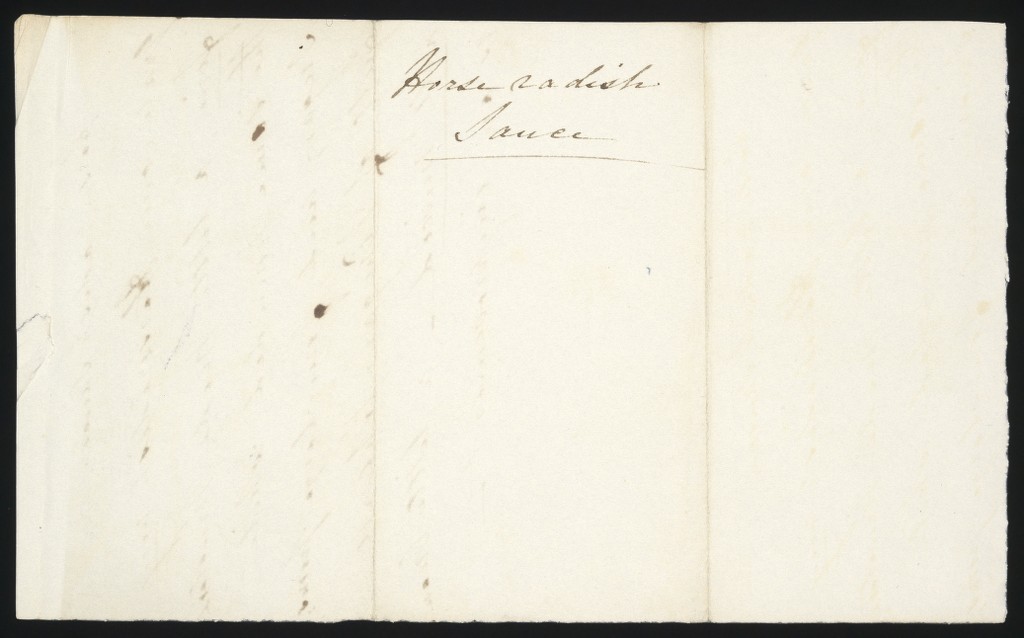 Horse radish
Sauce